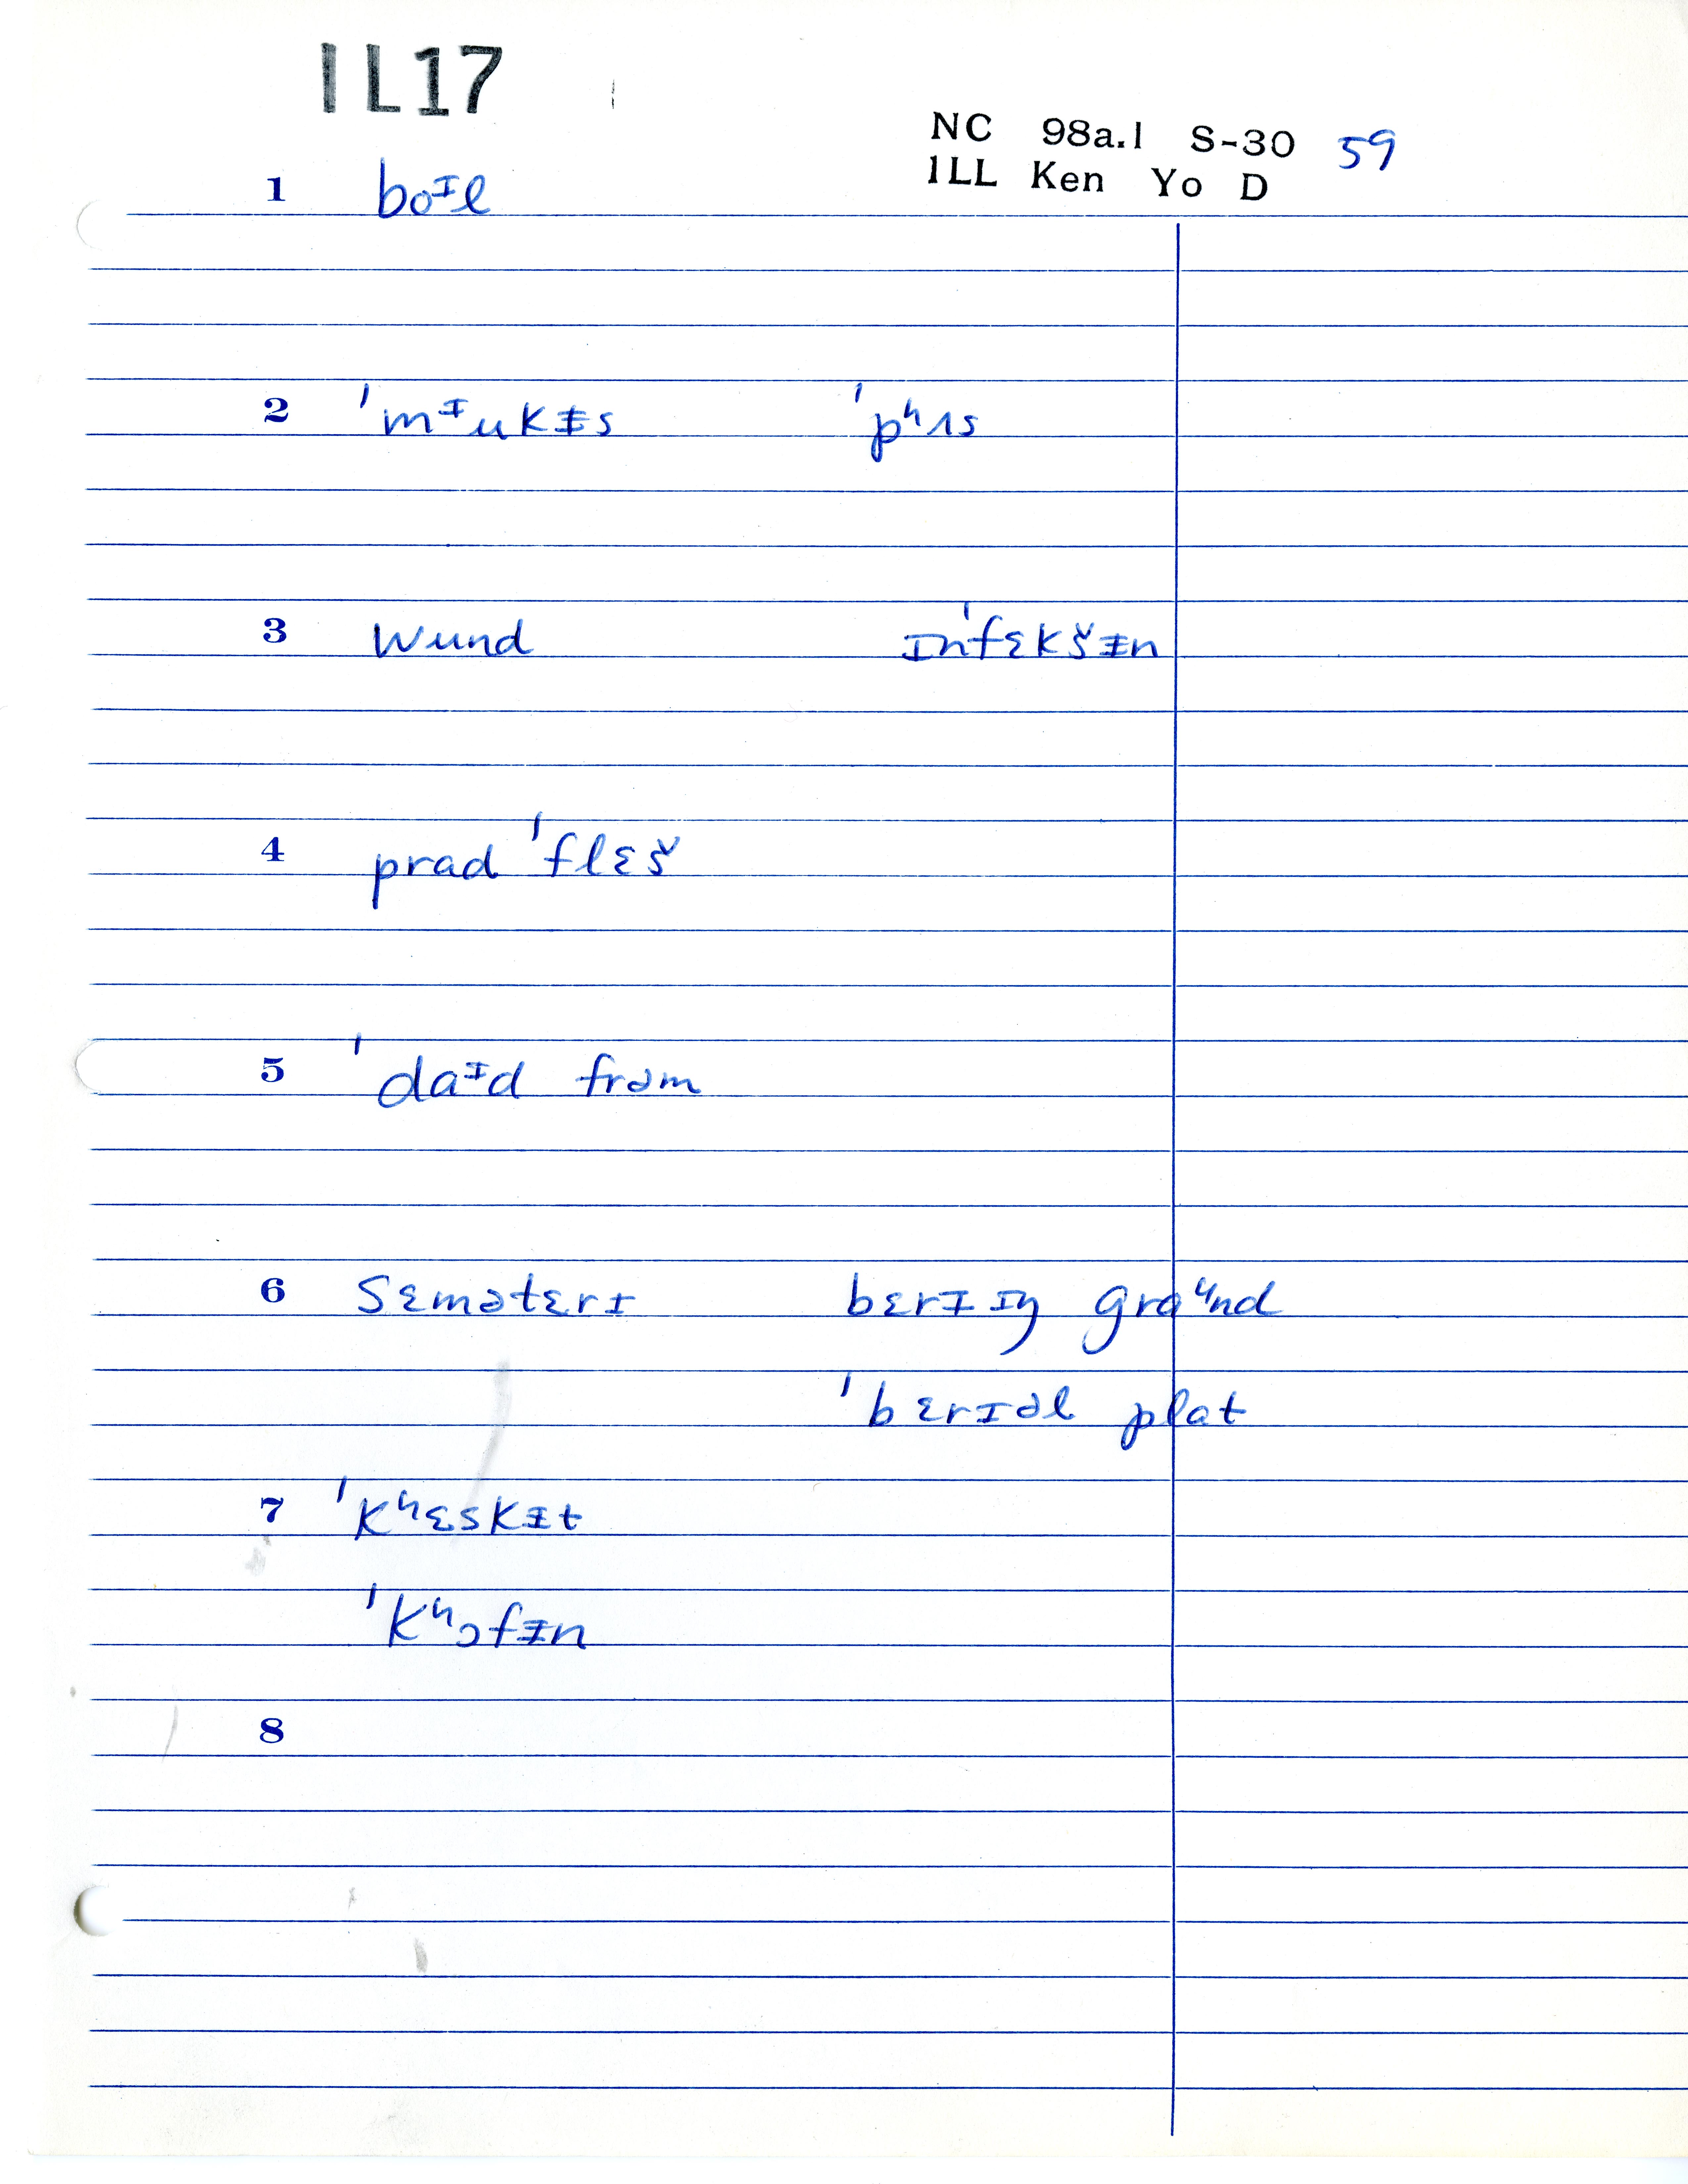 IL17
NC 98a.1 S-30 59
ILL Ken Yo D
1 boᴵl
2 ˈmᴵukɨs ˈpʰʌs
3 wund ɪnˈfɛkšɨn
4 prad ˈflɛš
5 ˈdaᴵd frəm
6 sɛmətɛrɪ bɛrɪɪŋ graᶶnd
ˈbɛrɪəl plat
7 ˈkʰɛskɨt
ˈkʰɔfɨn
8